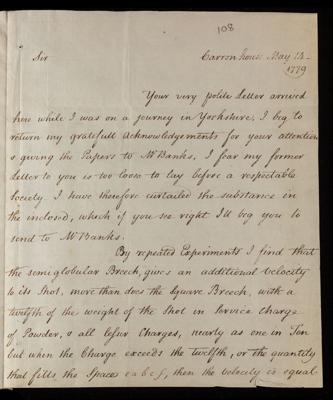 108
Sir
Carronhouse May 14.
1779
Your very polite Letter arrived
here while I was on a journey in Yorkshire, I beg to
return my gratefull Acknowledgements for your attention
& giving the Papers to Mr Banks. I fear my former
Letter to you is too loose to lay before a respectable
Society. I have therefore curtailed the substance in
the inclosed, which if you see right I'll beg you to
send to Mr Banks.
By repeated Experiments I find that
the semiglobular Breech, gives an additional Velocity
to its Shot, more than does the Square Breech, with a
twelfth of the weight of the Shot in Service charge
of Powder, & all lesser Charges, nearly as one in Ten
but when the Charge exceeds the twelfth, or the quantity
that fills the Space e a b e f, then the velocity is equal